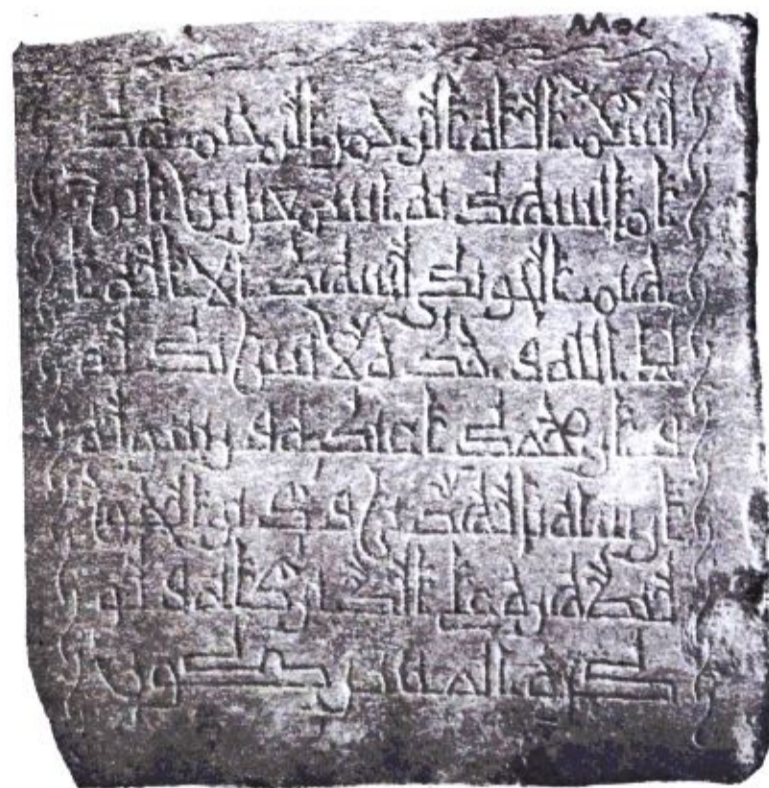 بسم الله الرحمن الرحيم هذا
ما يشهد به اسمعيل بن ابر
هيم يشهد الا اله ا
لا الله وحده لا شريك له
و ان محمدا عبده ورسوله
ارسله بالهدى ودين الحق
ليظهره على الدين كله ولو
كره المشركون